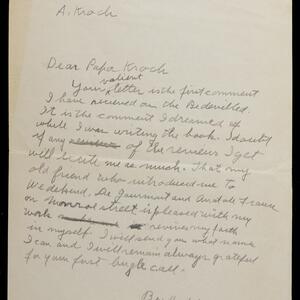 A. Kroch
Dear Papa Kroch
valiant
Your letter is the first comment
I have received on the Bedevilled.
It is the comment I dreamed of
while I was writing the book. I doubt
if any of the reviews I get
will elate me as much. That my
old friend who introduced me to
De Gourmont and Anatole France
on Monroe street is pleased with my
work revives my faith
in myself. I will send you what names
I can and I will remain always grateful
for your first bugle call.
Ben